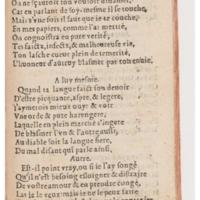 On ne s'auroit ton vouloir
Car en parlant de soy, mesme il se
Mais s'une fois il faut que ie te couche,
En mes papiers, comme i'ay merité,
On cognoistra en pure verité,
Tes faicts, infects, & malheureuse vie,
Ton lasche cueur plein de temerité,
L'honneur d'autruy blasmer par ton enuie.
A luy mesme.
Quand ta langue faict son deuoir
D'estre picquante, aspre, & legere,
I'aymerois mieux ouyr & voir
Vne orde & pute harengere,
Laquelle en plein marché s'ingere
De blasmer l'vn & l'autre aussi,
Au diable soit la langue fiere,
Du mal disant qui parle ainsi.
Autre.
Est-il point vray, ou si ie l'ay songé
Qu'il n'est besoing esloigner & distraire
De vostre amour & en prendre congé,
Las ie le veux mais ie ne